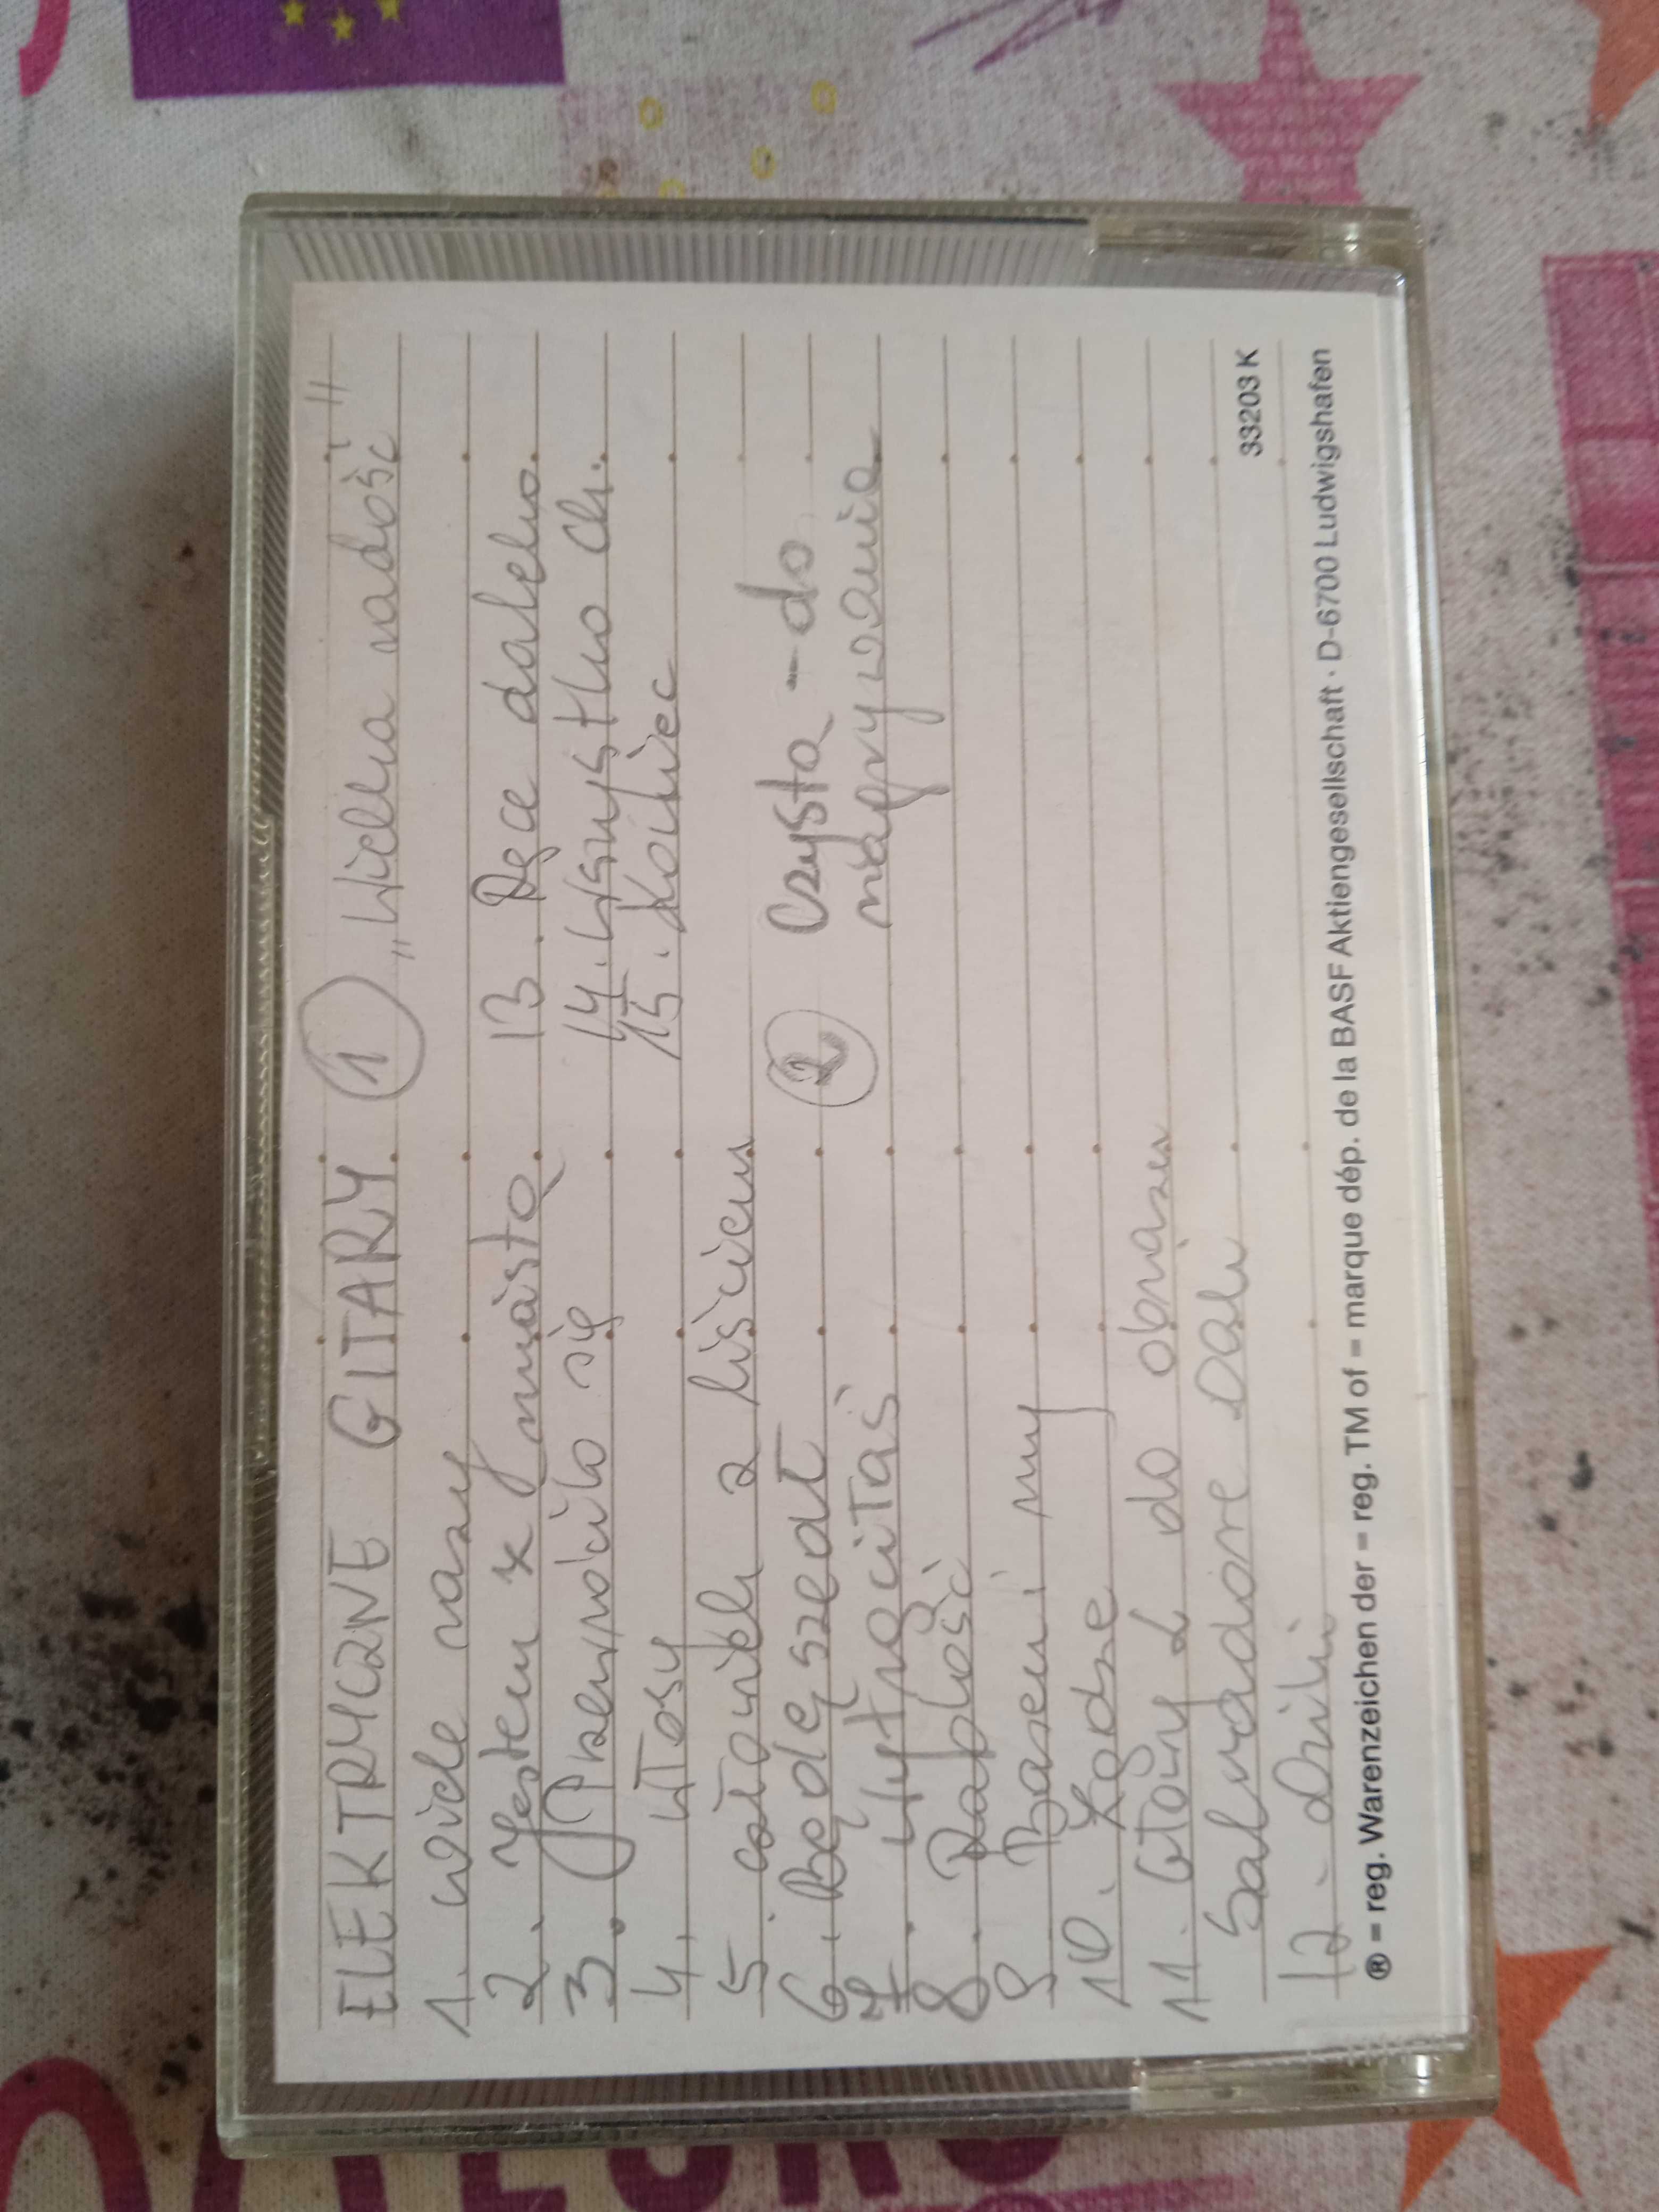 ELEKTRYCZNE GITARY ① „Wielka radość"
1. wiele razy
2. Jestem z miasta
3. Przewróciło się
4. Włosy
5. człowiek z liściem
6. Będę szedł
7. Wytrąciłaś
8. Dapłość
9 Basen i my
10. Kodze
11. Głowy L do obrazu
Salvadore Dali
12. Dziki
13. Dga daleko
14. Wszystko ch.
15. Koniec
② Czysta - do
nagrywania
33203 K
® = reg. Warenzeichen der = reg. TM of = marque dép. de la BASF Aktiengesellschaft · D-6700 Ludwigshafen